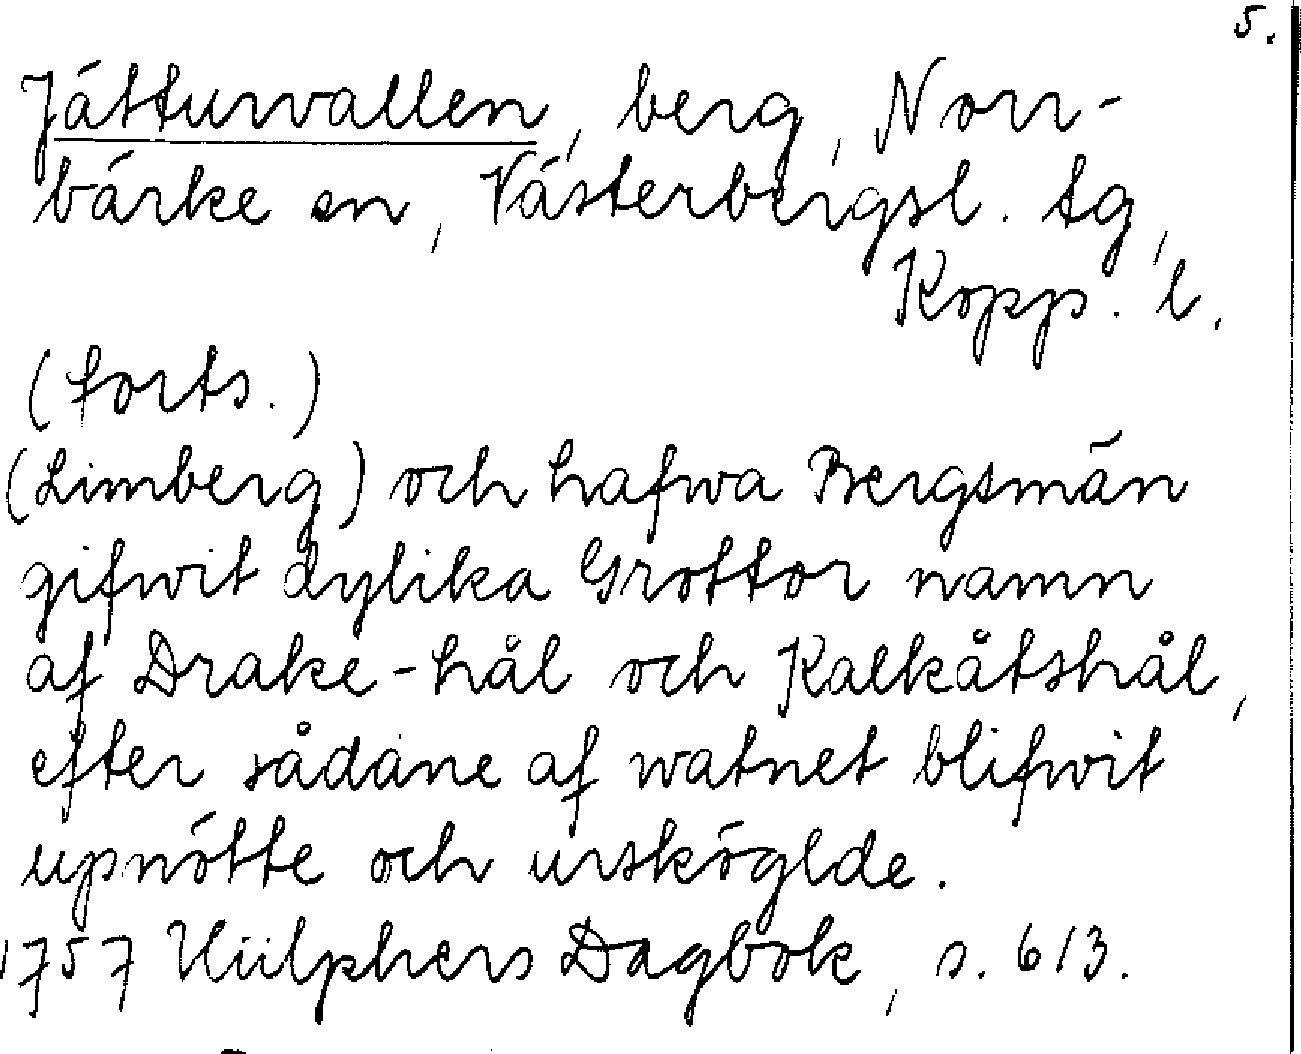 5.
Jätturvallen, berg, Norr-
bärke sn, Västerbergsl. tg,
Kopp. l.
(forts.)
(Limberg) och hafwa Bergsmän
gifwit dylika Grottor namn
af Drake-hål och Kalkåtshål,
efter sådane af watnet blifwit
upnötte och ursköglde.
1757 Hülphers Dagbok, s. 613.